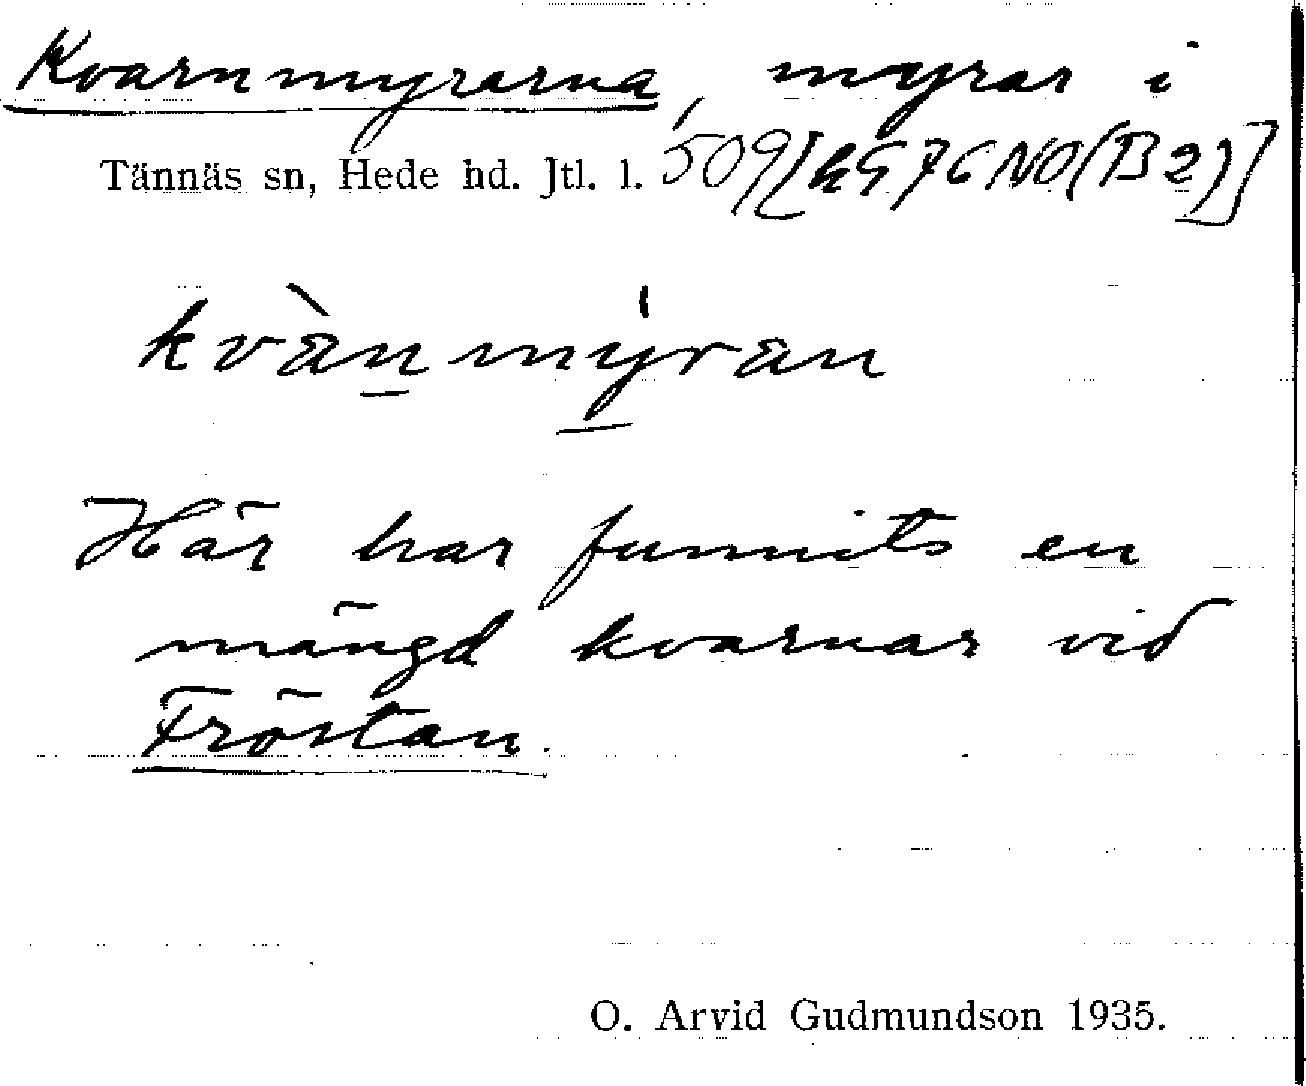 Kvarnmyrarna, myrar i
Tännäs sn, Hede hd. Jtl. l. 509 [kG 76 NO (B 2)]
kvànmýran
Här har funnits en
mängd kvarnar vid
Fröstan.
O. Arvid Gudmundson 1935.